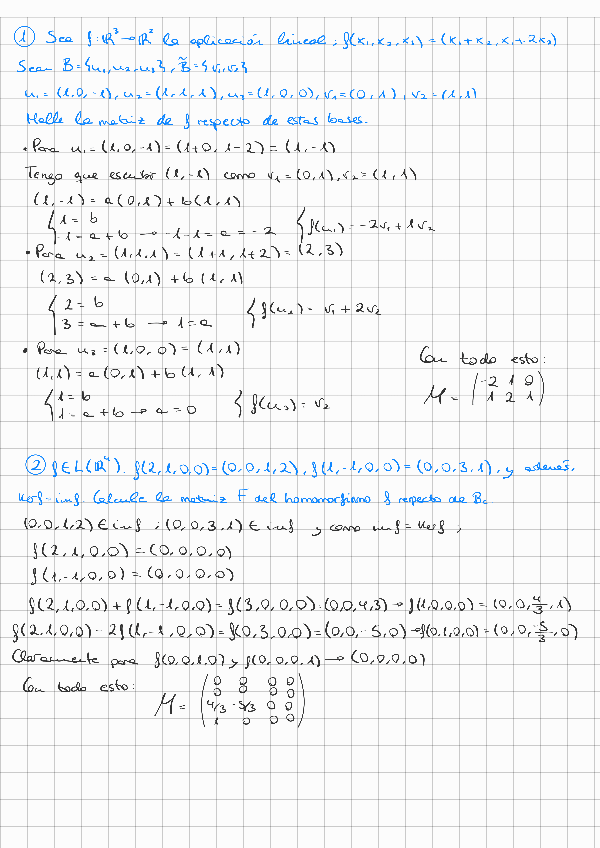 ① Sea f: ℝ³→ℝ² la aplicación lineal, f(x₁, x₂, x₃) = (x₁+x₂, x₁+2x₃)
Sean B={u₁, u₂, u₃}, B̃={v₁, v₂}
u₁=(1,0,-1), u₂=(1,1,1), u₃=(1,0,0), v₁=(0,1), v₂=(1,1)
Halle la matriz de f respecto de estas bases.
• Para u₁=(1,0,-1)=(1+0, 1-2)=(1,-1)
Tengo que escribir (1,-1) como v₁=(0,1), v₂=(1,1)
(1,-1)=a(0,1)+b(1,1)
{ 1=b
-1=a+b → -1-1=a=-2 { f(u₁)=-2v₁+1v₂
• Para u₂=(1,1,1)=(1+1, 1+2)=(2,3)
(2,3)=a(0,1)+b(1,1)
{ 2=b
3=a+b → 1=a { f(u₂)=v₁+2v₂
• Para u₃=(1,0,0)=(1,1)
(1,1)=a(0,1)+b(1,1)
{ 1=b
1=a+b → a=0 { f(u₃)=v₂
Con todo esto:
M = (-2 1 0
1 2 1)
② f∈L(ℝ⁴). f(2,1,0,0)=(0,0,1,2), f(1,-1,0,0)=(0,0,3,1), y además,
Kerf=imf. Calcule la matriz F del homomorfismo f respecto de Bc
(0,0,1,2)∈imf, (0,0,3,1)∈imf y como imf=Kerf,
f(2,1,0,0)=(0,0,0,0)
f(1,-1,0,0)=(0,0,0,0)
f(2,1,0,0)+f(1,-1,0,0)=f(3,0,0,0)=(0,0,4,3)→f(1,0,0,0)=(0,0,4/3,1)
f(2,1,0,0)-2f(1,-1,0,0)=f(0,3,0,0)=(0,0,-5,0)→f(0,1,0,0)=(0,0,-5/3,0)
Claramente para f(0,0,1,0) y f(0,0,0,1)→(0,0,0,0)
Con todo esto:
M = (0 0 0 0
0 0 0 0
4/3 -5/3 0 0
1 0 0 0)